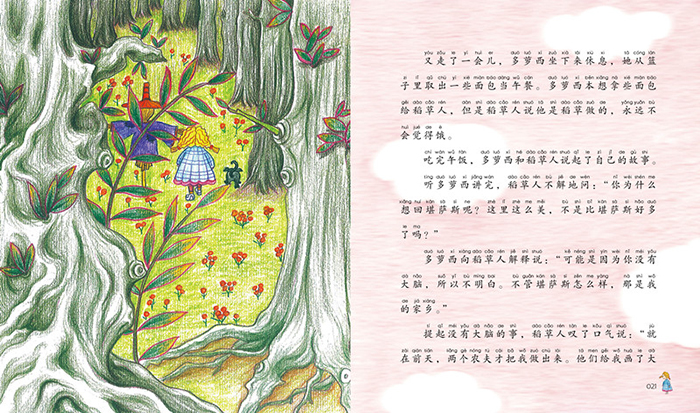 又走了一会儿，多萝西坐下来休息，她从篮
子里取出一些面包当午餐。多萝西本想拿些面包
给稻草人，但是稻草人说他是稻草做的，永远不
会觉得饿。
吃完午饭，多萝西和稻草人说起了自己的故事。
听多萝西讲完，稻草人不解地问：“你为什么
想回堪萨斯呢？这里这么美，不是比堪萨斯好多
了吗？”
多萝西向稻草人解释说：“可能是因为你没有
大脑，所以不明白。不管堪萨斯怎么样，那是我
的家乡。”
提起没有大脑的事，稻草人叹了口气说：“就
在前天，两个农夫才把我做出来。他们给我画了大
021